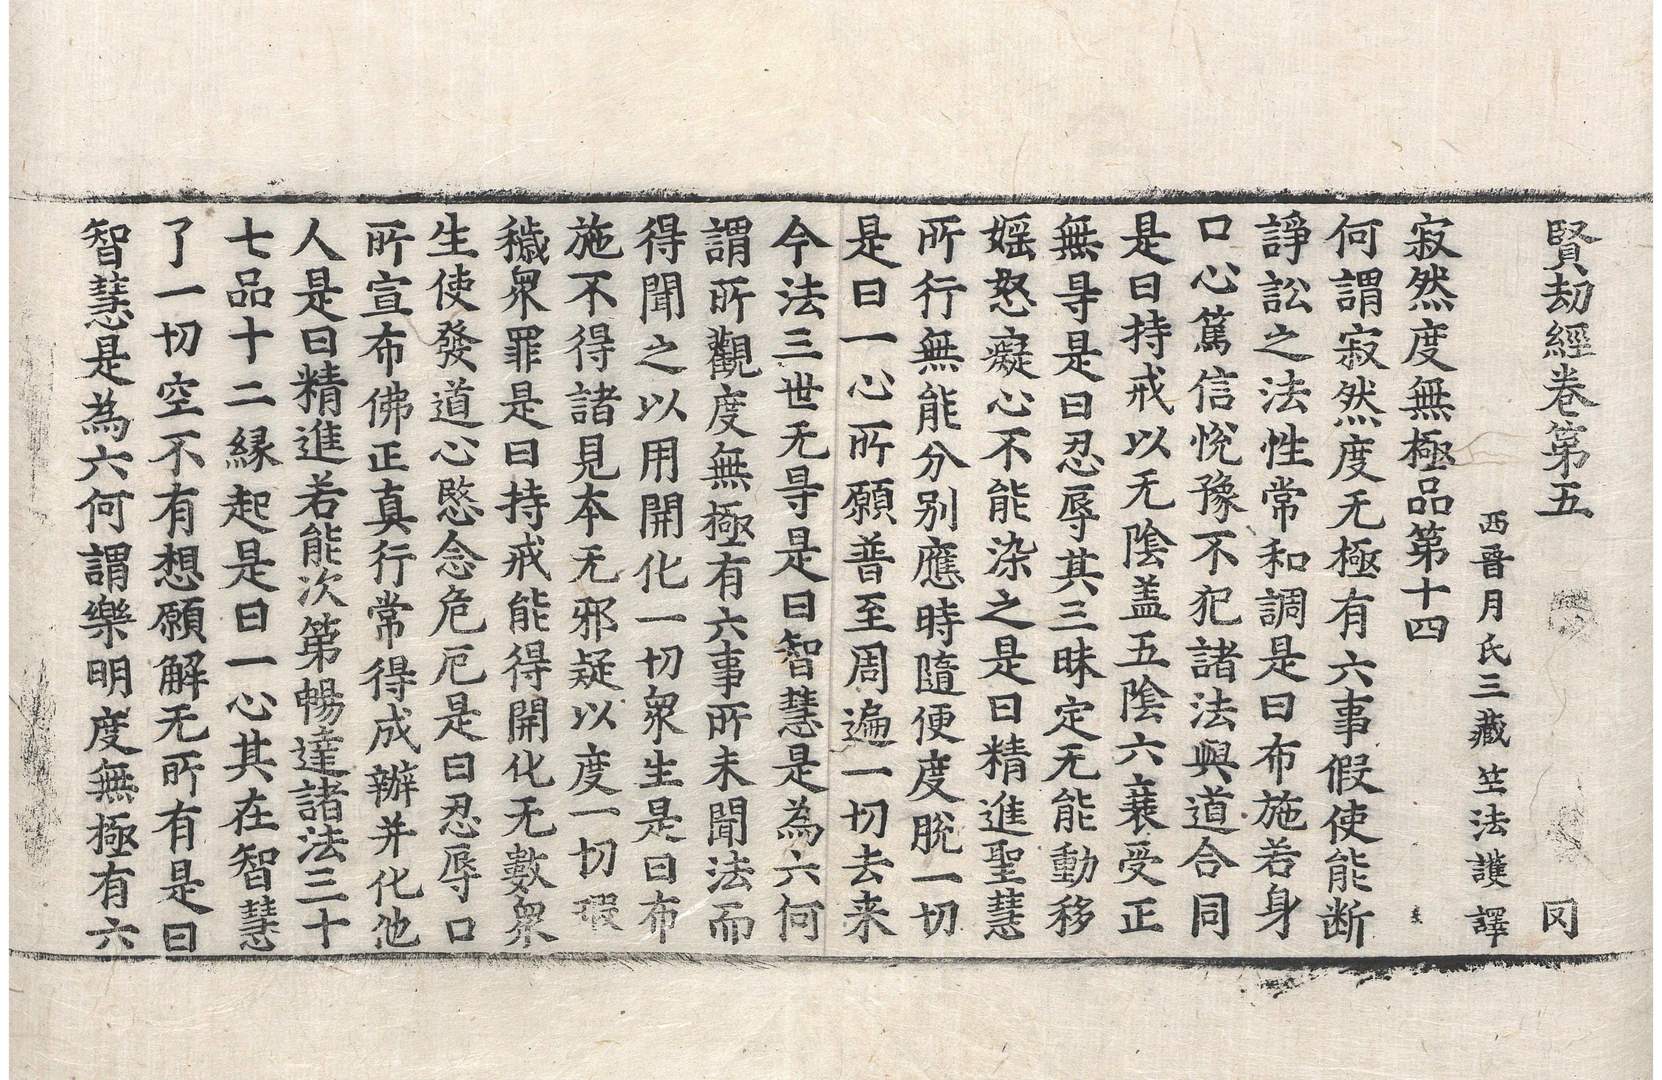 賢劫經卷第五 罔
西晉月氏三藏竺法護 譯
寂然度無極品第十四
何謂寂然度无極有六事假使能断
諍訟之法性常和調是曰布施若身
口心篤信悅豫不犯諸法與道合同
是曰持戒以无陰盖五陰六衰受正
無㝵是曰忍辱其三昧定无能動移
婬怒癡心不能染之是曰精進聖慧
所行無能分别應時隨便度脫一切
是曰一心所願普至周遍一切去来
今法三世无㝵是曰智慧是為六何
謂所觀度無極有六事所未聞法而
得聞之以用開化一切衆生是曰布
施不得諸見本无邪疑以度一切瑕
穢衆罪是曰持戒能得開化无數衆
生使發道心愍念危厄是曰忍辱口
所宣布佛正真行常得成辦并化他
人是曰精進若能次第暢達諸法三十
七品十二縁起是曰一心其在智慧
了一切空不有想願解无所有是曰
智慧是為六何謂樂明度無極有六